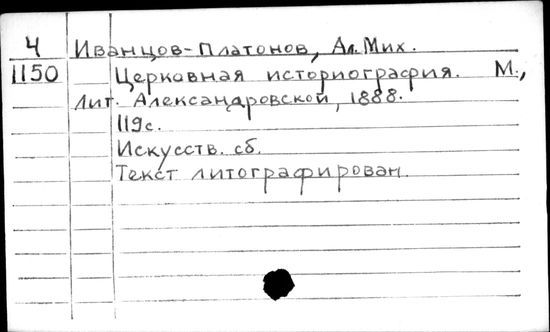 4 Иванцов-Платонов, Ал. Мих.
1150 Церковная историография. М.,
Лит. Александровской, 1888.
119 с.
Искусств. сб.
Текст литографирован.